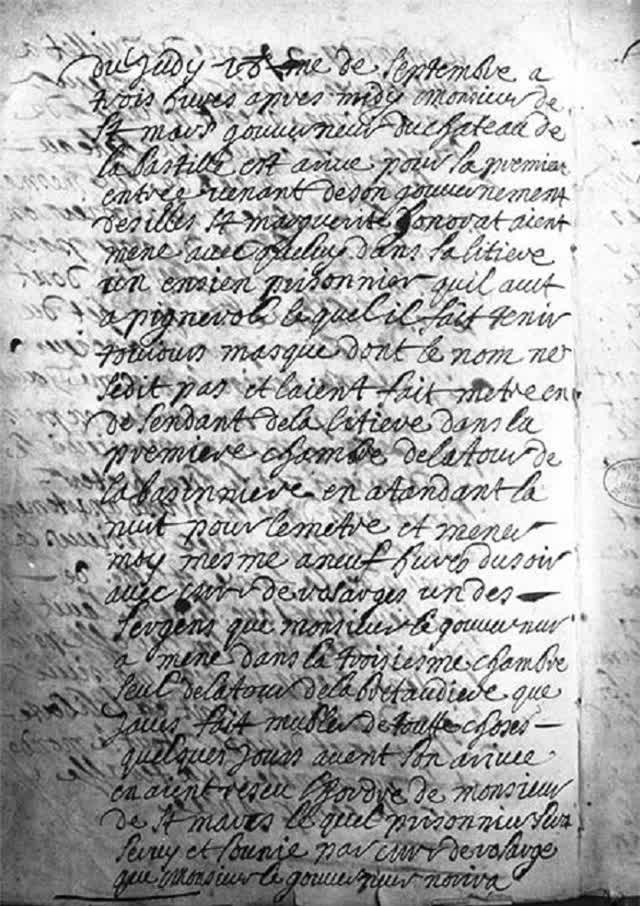 du Judy 18me de Septembre a
trois hures apres midy monsieur de
St mars gouverneur du chateau de
la bastille est arive pour sa premiere
entrée venant de son gouvernement
des illes St marguerite honorat aient
mene avecque luy dans sa litiere
un ensien prisonnier quil avet
a pignerol lequel il fait tenir
touiours masque dont le nom ne
sedit pas et laient fait metre en
desendant de la litiere dans la
premiere chambre de la tour de
la basinniere en atandant la
nuit pour le metre et mener
moy mesme a neuf hures du soir
avec de rosarges un des
sergens que monsieur le gouverneur
a mene dans la troisiesme chambre
seul de la tour de la bretaudiere que
javes fait mubler de toutte choses
quelques jours avent son arivee
en aient reseu lhordre de monsieur
de St mars lequel prisonnier sera
servy et sounie par de rosarge
que monsieur le gouverneur norira